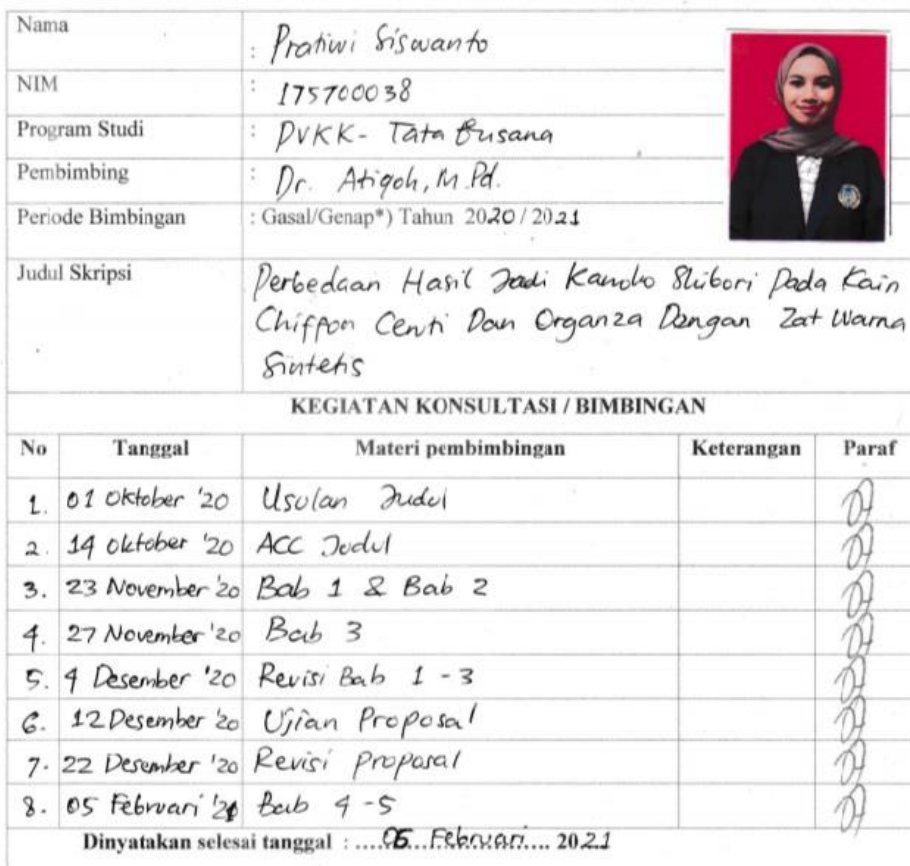 Nama : Pratiwi Siswanto
NIM : 175700038
Program Studi : PVKK- Tata Busana
Pembimbing : Dr. Atiqoh, M.Pd.
Periode Bimbingan : Gasal/Genap*) Tahun 2020/2021
Judul Skripsi Perbedaan Hasil Jadi Kanoko Shibori Pada Kain
Chiffon Ceruti Dan Organza Dengan Zat Warna
Sintetis
KEGIATAN KONSULTASI / BIMBINGAN
No Tanggal Materi pembimbingan Keterangan Paraf
1. 01 Oktober '20 Usulan Judul
2. 14 Oktober '20 ACC Judul
3. 23 November '20 Bab 1 & Bab 2
4. 27 November '20 Bab 3
5. 4 Desember '20 Revisi Bab 1 - 3
6. 12 Desember '20 Ujian Proposal
7. 22 Desember '20 Revisi Proposal
8. 05 Februari '21 Bab 4 -5
Dinyatakan selesai tanggal : .....05...Februari.... 2021